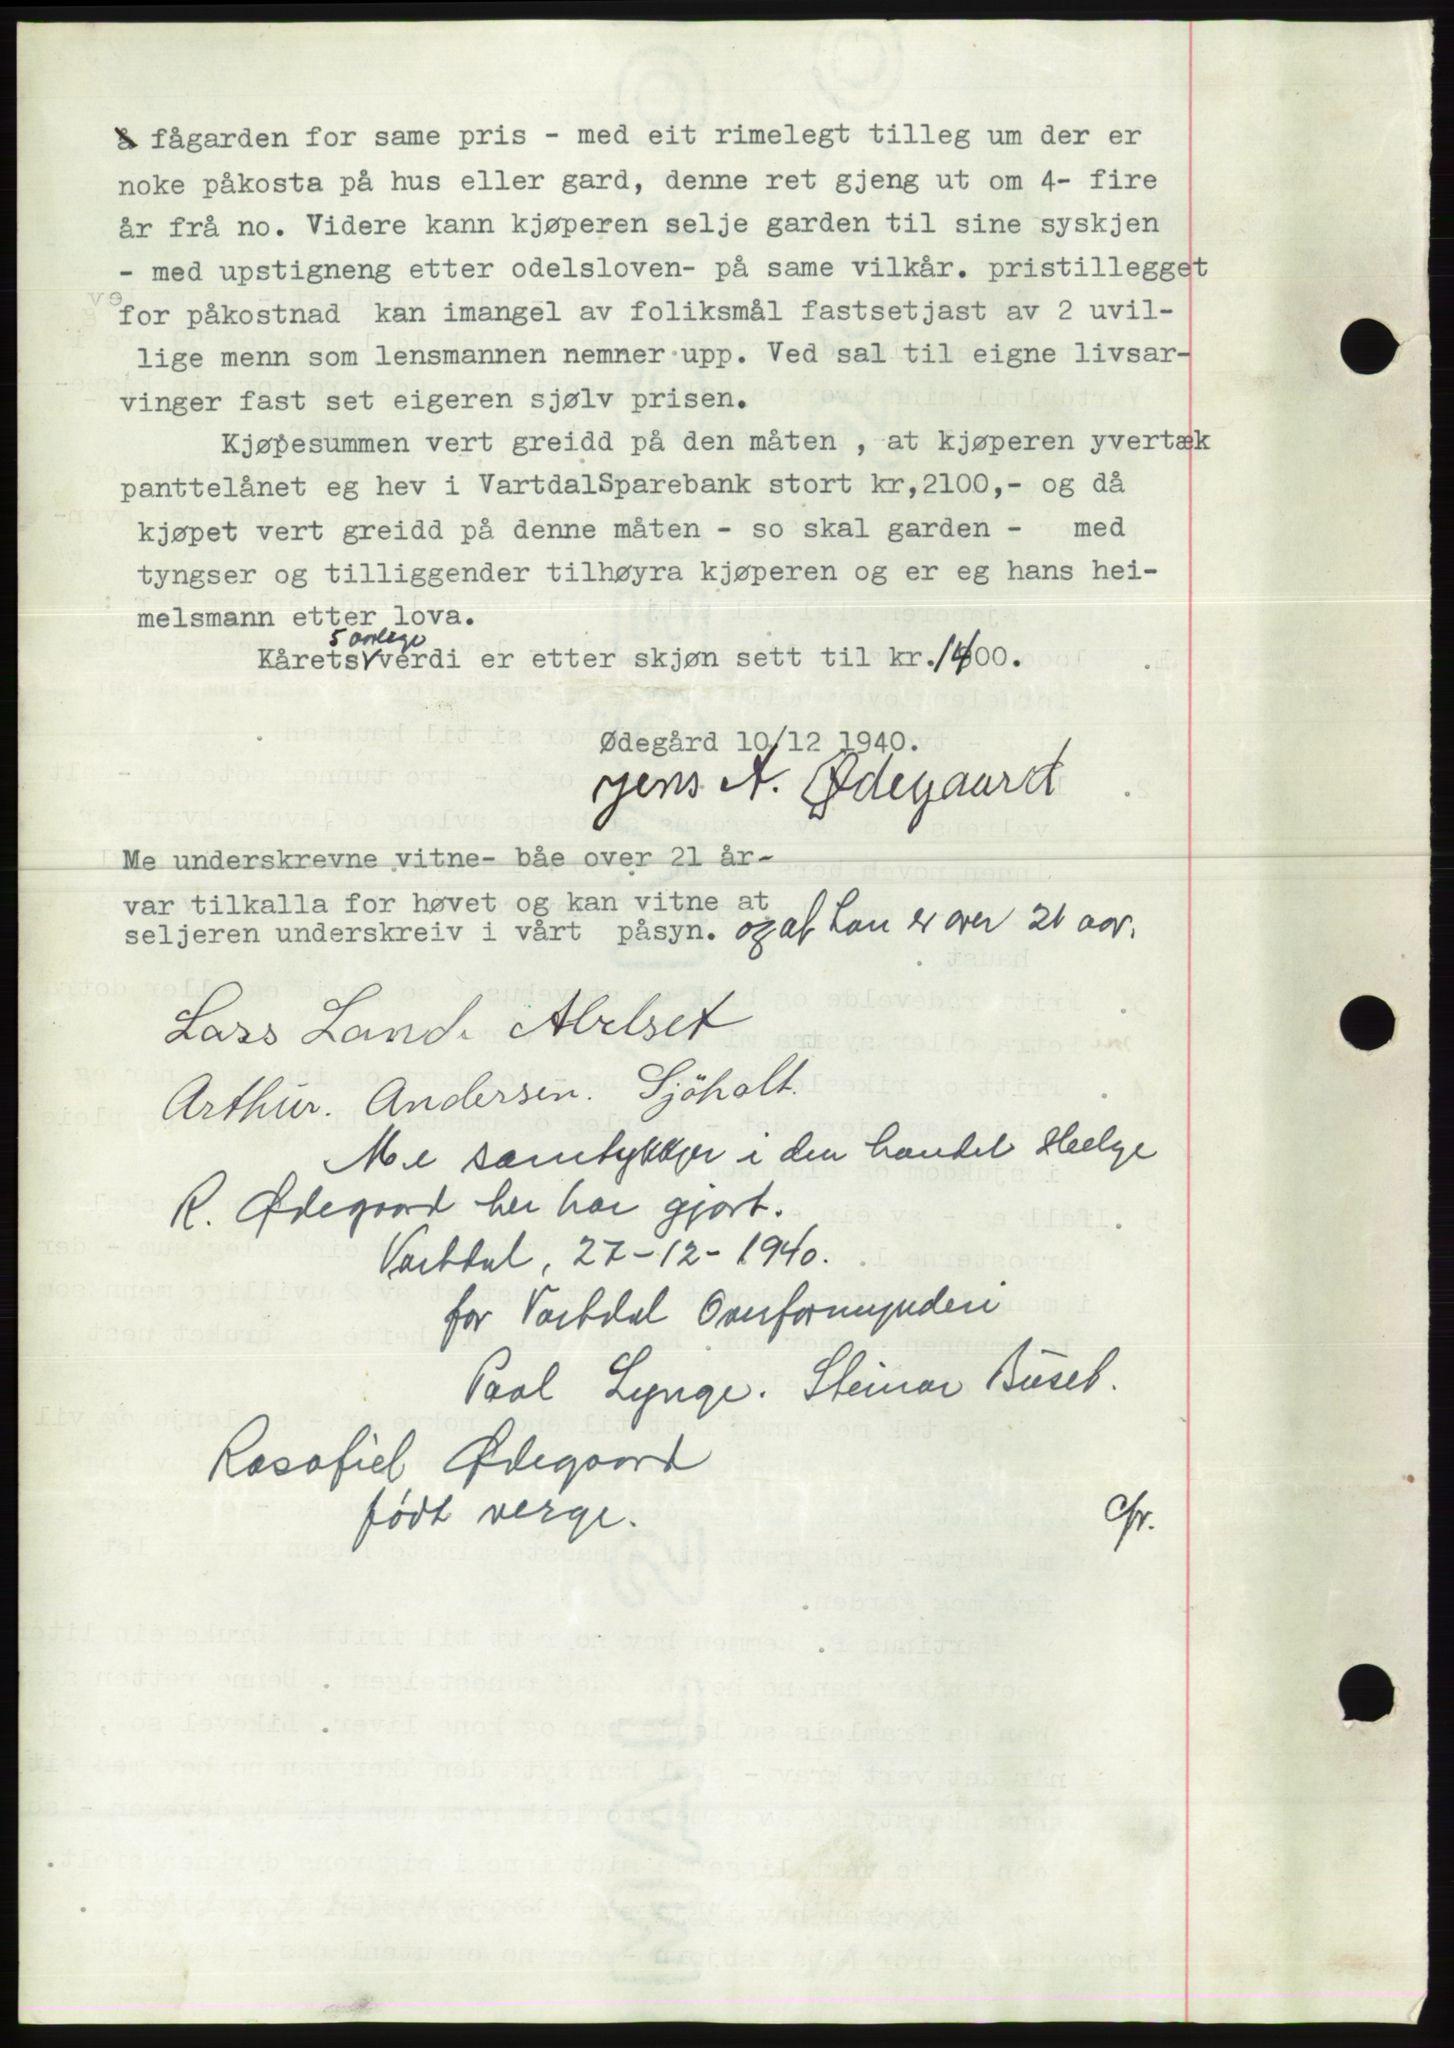 å fågarden for same pris - med eit rimelegt tilleg um der er
noke påkosta på hus eller gard, denne ret gjeng ut om 4- fire
år frå no. Videre kann kjøperen selje garden til sine syskjen
- med upstigneng etter odelsloven- på same vilkår. pristillegget
for påkostnad kan imangel av foliksmål fastsetjast av 2 uvil-
lige menn som lensmannen nemner upp. Ved sal til eigne livsar-
vinger fast set eigeren sjølv prisen.
Kjøpesummen vert greidd på den måten , at kjøperen yvertæk
panttelånet eg hev i VartdalSparebank stort kr,2100,- og då
kjøpet vert greidd på denne måten - so skal garden - med
tyngser og tilliggender tilhøyra kjøperen og er eg hans hei-
melsmann etter lova.
5 aarlege
Kårets verdi er etter skjøn sett til kr. 1400.
Ødegård 10/12 1940.
Jens A. Ødegaard
Me underskrevne vitne- båe over 21 år-
var tilkalla for høvet og kan vitne at
seljeren underskreiv i vårt påsyn. og at han er over 21 aar.
Lars Land. Abelset
Arthur. Andersen. Sjöholt.
Me samtykkjer i den handel Helge
R. Ødegaard her har gjort.
Vartdal, 27-12-1940.
for Vartdal Overformynderi
Paal Lynge. Steinar Buset.
Rasafiel Ødegaard
født verge.